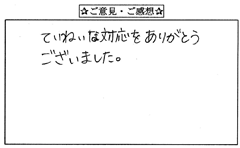 ☆ご意見・ご感想☆
ていねいな対応をありがとう
ございました。